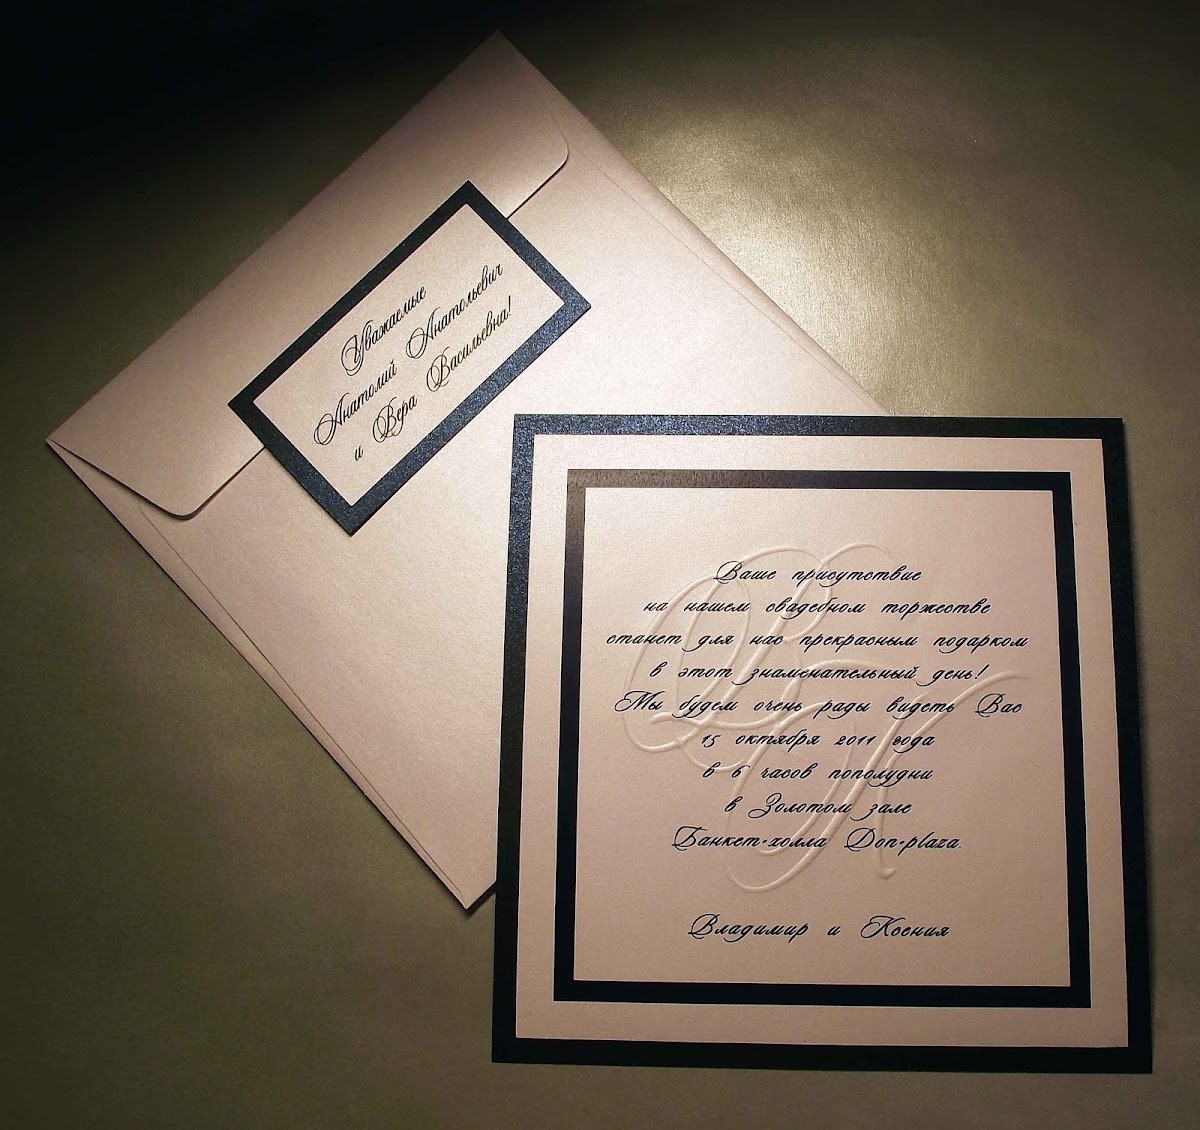 Уважаемые
Анатолий Анатольевич
и Вера Васильевна!
Ваше присутствие
на нашем свадебном торжестве
станет для нас прекрасным подарком
в этот знаменательный день!
Мы будем очень рады видеть Вас
15 октября 2011 года
в 6 часов пополудни
в Золотом зале
Банкет-холла Don-plaza.
Владимир и Ксения
ВК